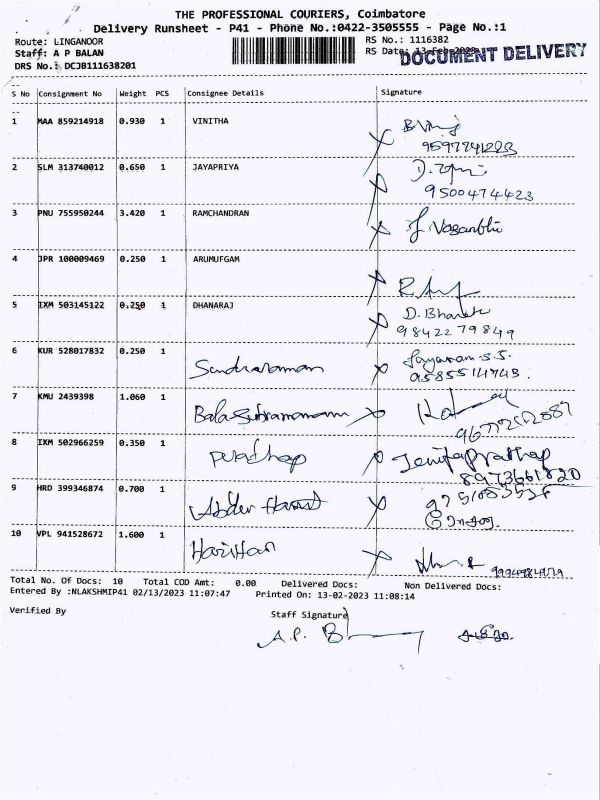 THE PROFESSIONAL COURIERS, Coimbatore
Delivery Runsheet - P41 - Phone No.:0422-3505555 - Page No.:1
Route: LINGANOOR
RS No.: 1116382
Staff: A P BALAN
RS Date: 13-Feb-2023
DOCUMENT DELIVERY
DRS No.: DCJB111638201
S No Consignment No Weight PCS Consignee Details Signature
1 MAA 859214918 0.930 1 VINITHA
2 SLM 313740012 0.650 1 JAYAPRIYA
9500474423
3 PNU 755950244 3.420 1 RAMCHANDRAN
4 JPR 100009469 0.250 1 ARUMUFGAM
5 IXM 503145122 0.250 1 DHANARAJ
9842279849
6 KUR 528017832 0.250 1 Jayaram.S.S.
7 KMU 2439398 1.060 1 Balasubramaniam
8 IXM 502966259 0.350 1
9 HRD 399346874 0.700 1
10 VPL 941528672 1.600 1 Hariharan
Total No. Of Docs: 10 Total COD Amt: 0.00 Delivered Docs: Non Delivered Docs:
Entered By :NLAKSHMIP41 02/13/2023 11:07:47 Printed On: 13-02-2023 11:08:14
Verified By
Staff Signature
A.P. B